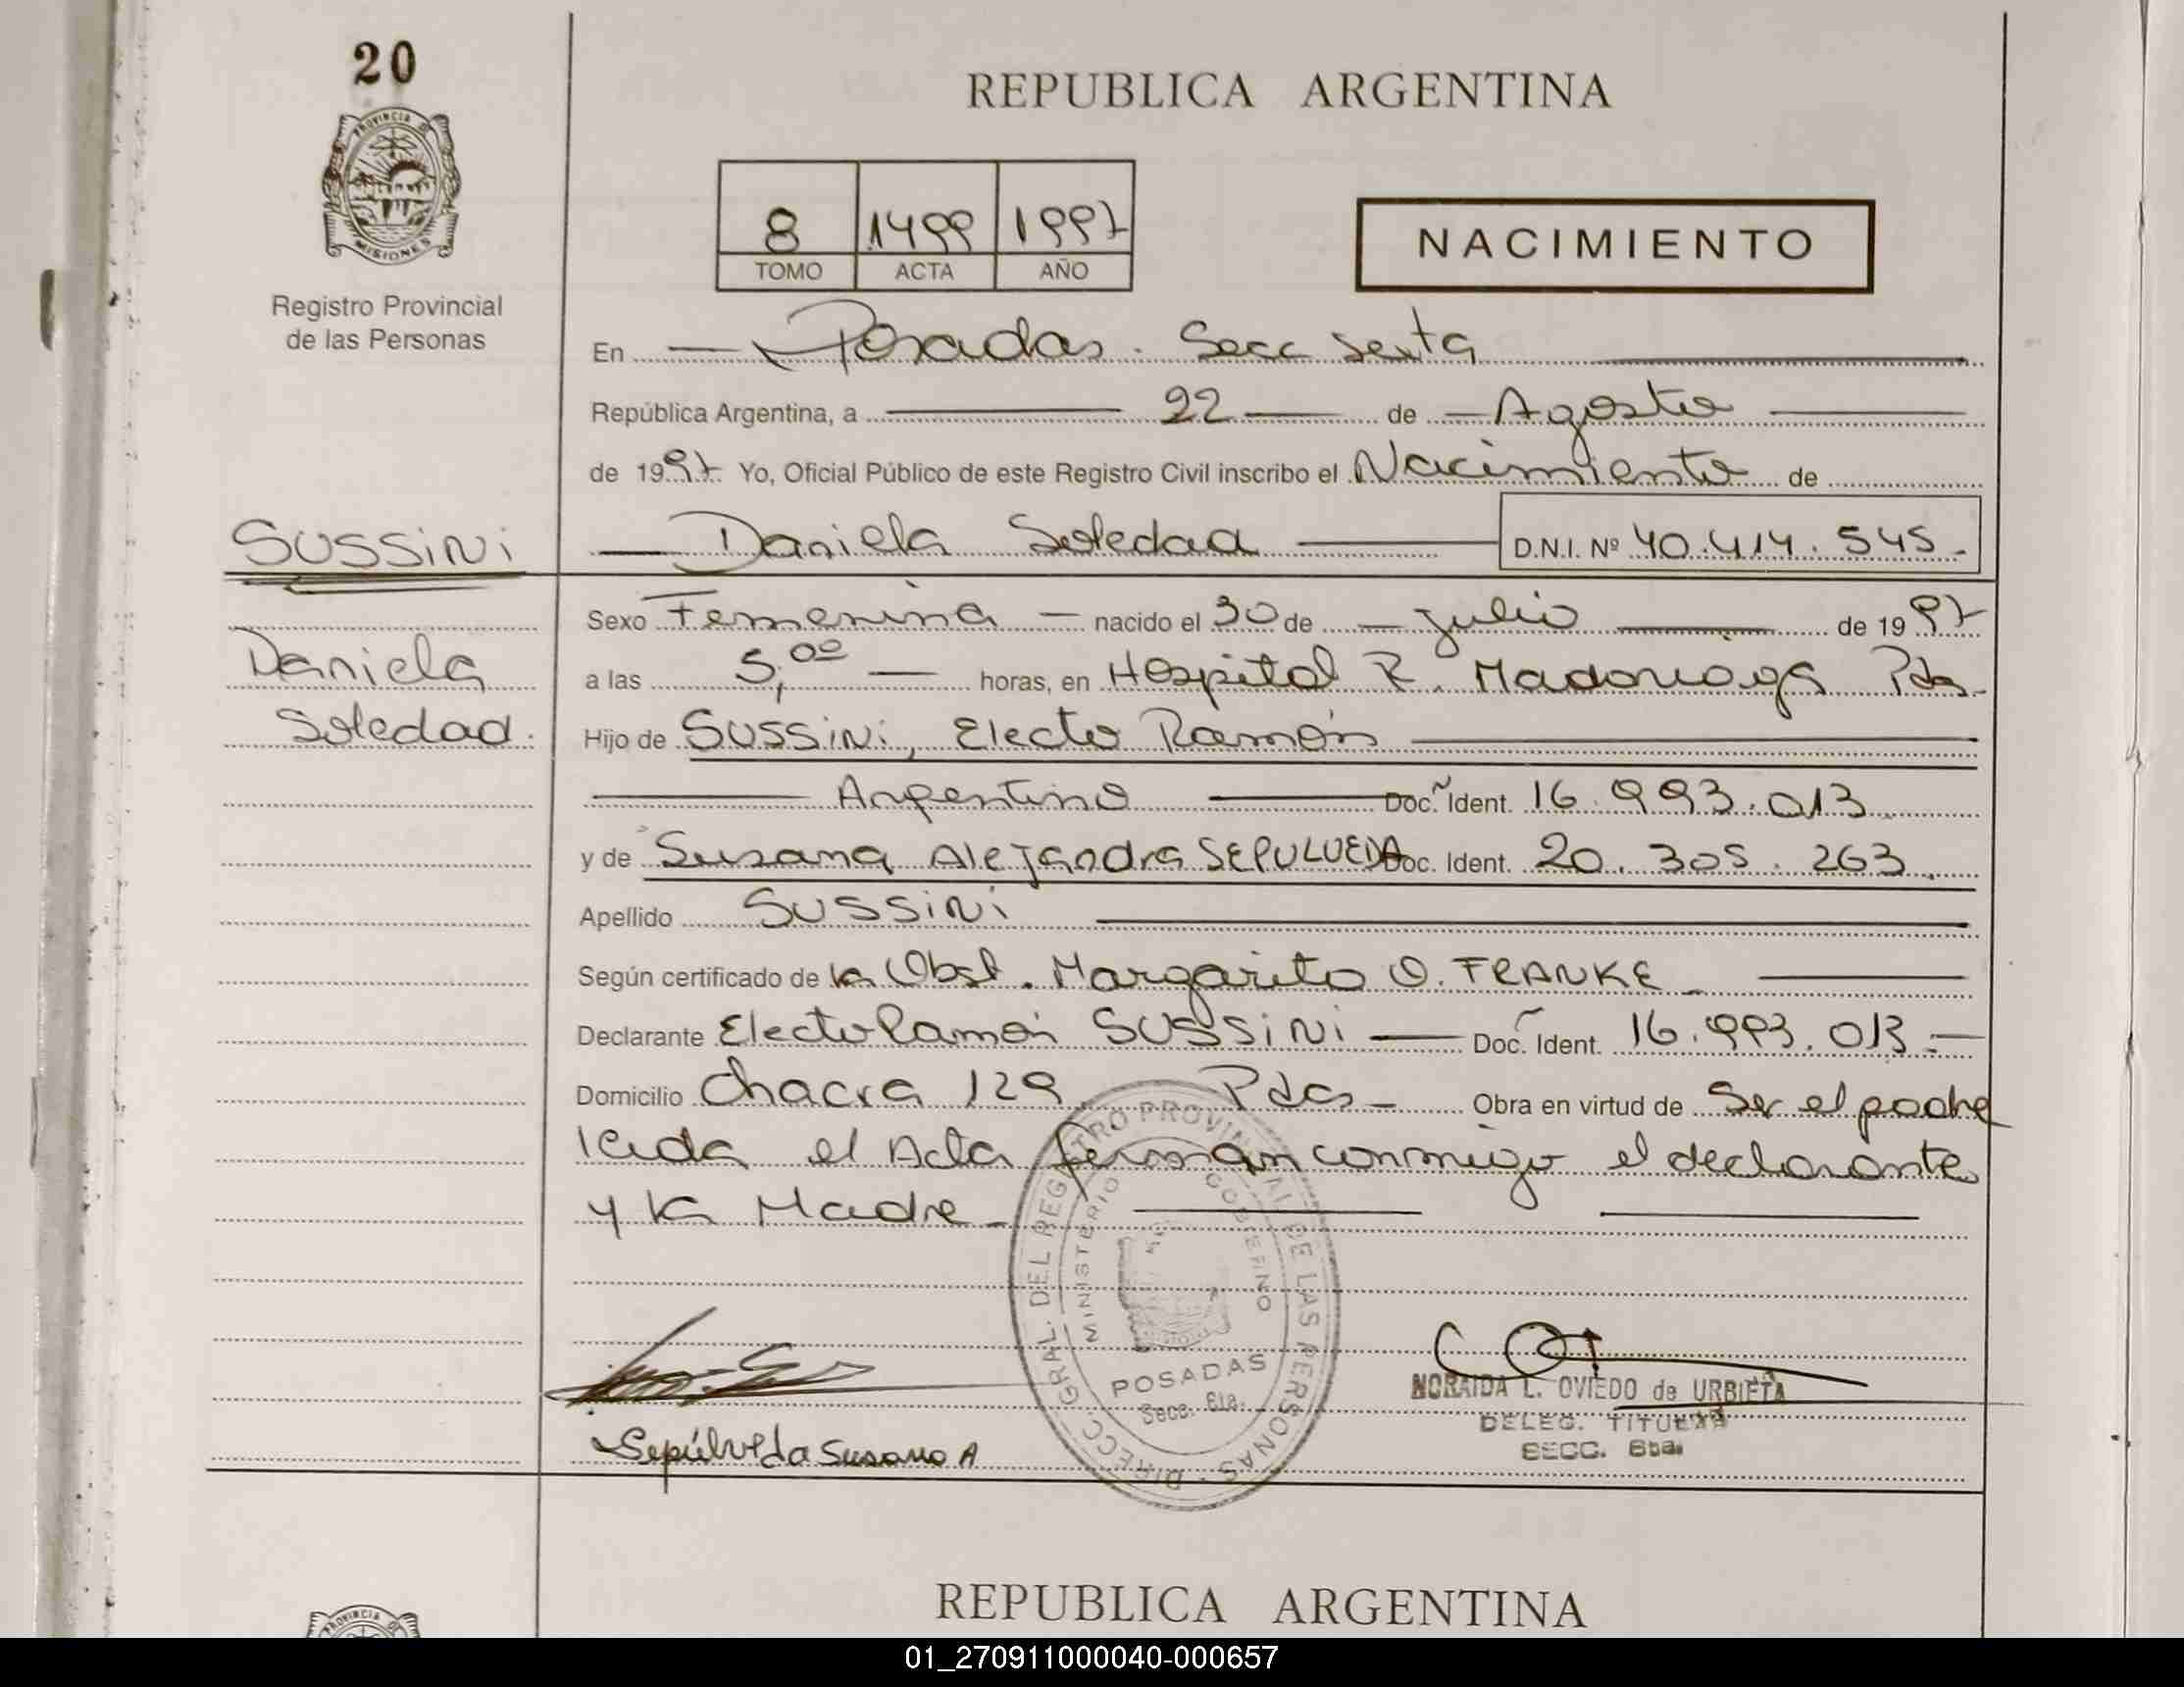 20
PROVINCIA DE
MISIONES
Registro Provincial
de las Personas
REPUBLICA ARGENTINA
8 1499 1997
TOMO ACTA AÑO
NACIMIENTO
En Posadas. Secc Sexta
República Argentina, a 22 de Agosto
de 1997 Yo, Oficial Público de este Registro Civil inscribo el Nacimiento de
SUSSINI
Daniela Soledad D.N.I. Nº 40.414.545.
Sexo Femenina nacido el 30 de Julio de 1997
Daniela
a las 5,00 horas, en Hospital R. Madariaga Pdas.
Soledad.
Hijo de SUSSINI, Electo Ramón
Argentino Doc. Ident. 16.993.013
y de Susana Alejandra SEPULVEDA Doc. Ident. 20.305.263.
Apellido SUSSINI
Según certificado de la Obst. Margarita O. FRANKE
Declarante Electo Ramón SUSSINI Doc. Ident. 16.993.013.
Domicilio Chacra 129 Pdas Obra en virtud de Ser el padre
leida el Acta firman conmigo el declarante
y la Madre
DIRECC. GRAL. DEL REGISTRO PROVINCIAL DE LAS PERSONAS
MINISTERIO GOBIERNO
POSADAS
Secc. 6ta.
Sepúlveda Susana A
NORAIDA L. OVIEDO de URBIETA
DELEG. TITULAR
SECC. 6ta.
REPUBLICA ARGENTINA
PROVINCIA
01_270911000040-000657